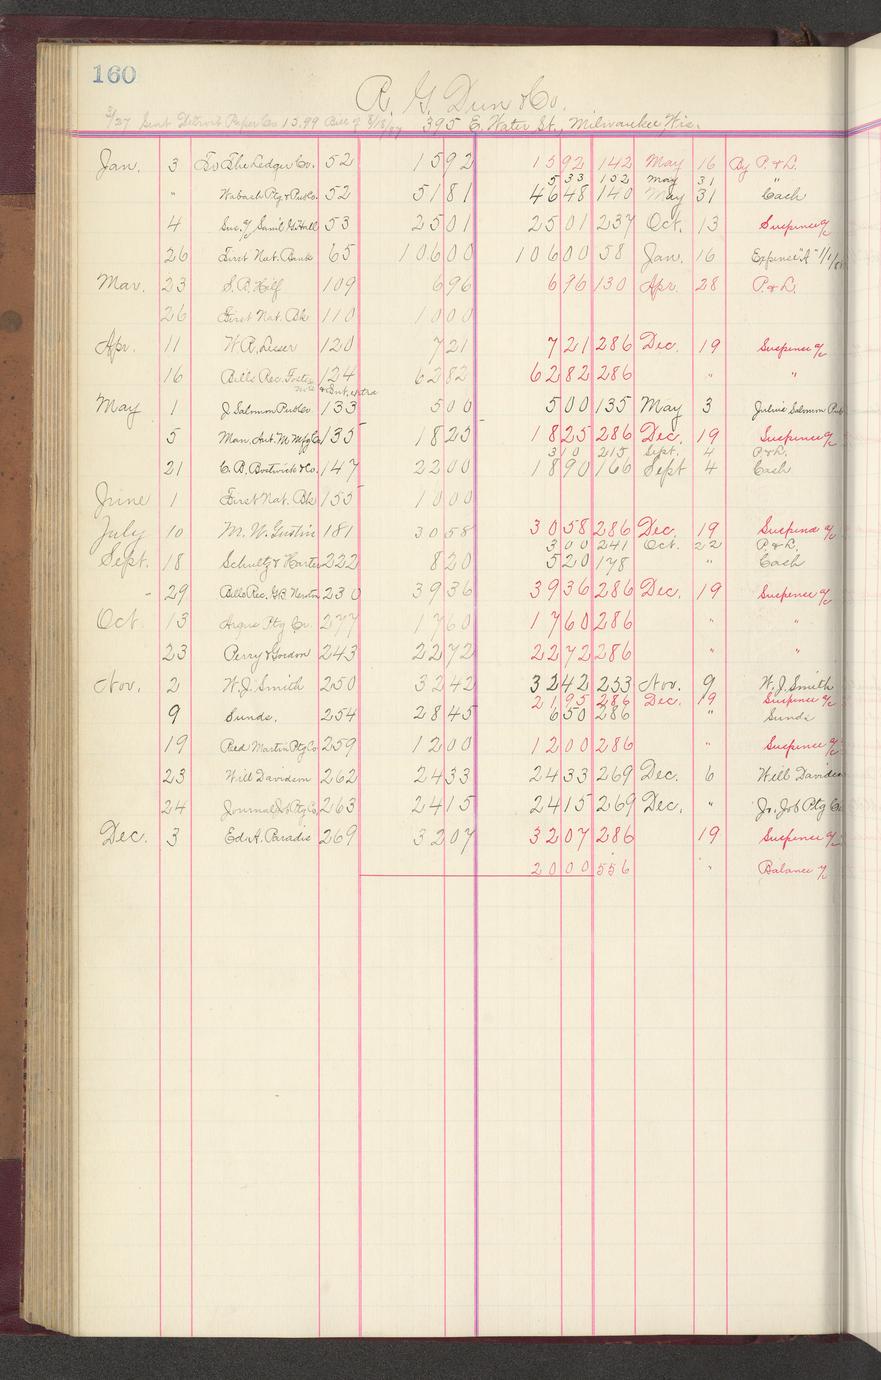 160
R. G. Dun & Co.
3/27 Sent Detroit Paper Co 13.99 Bill of 3/18/07 395 E. Water St., Milwaukee, Wis.
Jan. 3 To The Ledger Co. 52 15 92 15 92 142 May 16 By P. & L.
5 33 152 May 31 "
" Wabash Ptg & Pub Co. 52 51 81 46 48 140 May 31 Cash
4 Suc. of Sam'l G. Hall 53 25 01 25 01 237 Oct. 13 Suspense a/c
26 First Nat. Bank 65 106 00 106 00 58 Jan. 16 Expense "A"
Mar. 23 S. B. Hilf 109 6 96 6 96 130 Apr. 28 P. & L.
26 First Nat. Bk 110 10 00
Apr. 11 W. R. Lesser 120 7 21 7 21 286 Dec. 19 Suspense a/c
16 Bills Rec. Foster 124 62 82 62 82 286 " "
note & Int. extra
May 1 J Salmon Pub Co 133 5 00 5 00 135 May 3 Julius Salmon Pub
5 Man. Aut. M Mfg Co 135 18 25 18 25 286 Dec. 19 Suspense a/c
3 10 215 Sept. 4 P. & L.
21 C. B. Bostwick & Co. 147 22 00 18 90 166 Sept 4 Cash
June 1 First Nat. Bk 155 10 00
July 10 M. W. Gustin 181 30 58 30 58 286 Dec. 19 Suspense a/c
3 00 241 Oct. 22 P. & L.
Sept. 18 Schultz & Harter 222 8 20 5 20 178 " Cash
29 Bills Rec. G.B. Newton 230 39 36 39 36 286 Dec. 19 Suspense a/c
Oct. 13 Argus Ptg Co. 277 17 60 17 60 286 " "
23 Perry & Gordon 243 22 72 22 72 286 " "
Nov. 2 W. J. Smith 250 32 42 32 42 253 Nov. 9 W. J. Smith
21 95 286 Dec. 19 Suspense a/c
9 Sunds. 254 28 45 6 50 286 " Sunds
19 Red Martin Ptg Co 259 12 00 12 00 286 " Suspense a/c
23 Will Davidson 262 24 33 24 33 269 Dec. 6 Will Davidson
24 Journal Job Ptg Co. 263 24 15 24 15 269 Dec. " Jr. Job Ptg Co
Dec. 3 Ed. A. Paradis 269 32 07 32 07 286 19 Suspense a/c
20 00 556 " Balance a/c